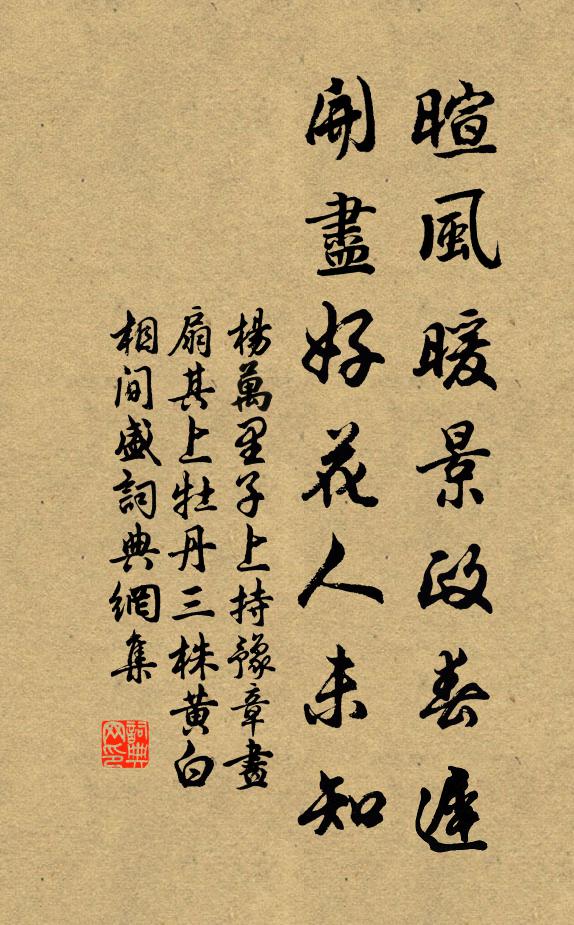 暄風暖景政春遲
開盡好花人未知
楊萬里子上持豫章畫
扇其上牡丹三株黃白
相間盛詞典網集
詞典
网印